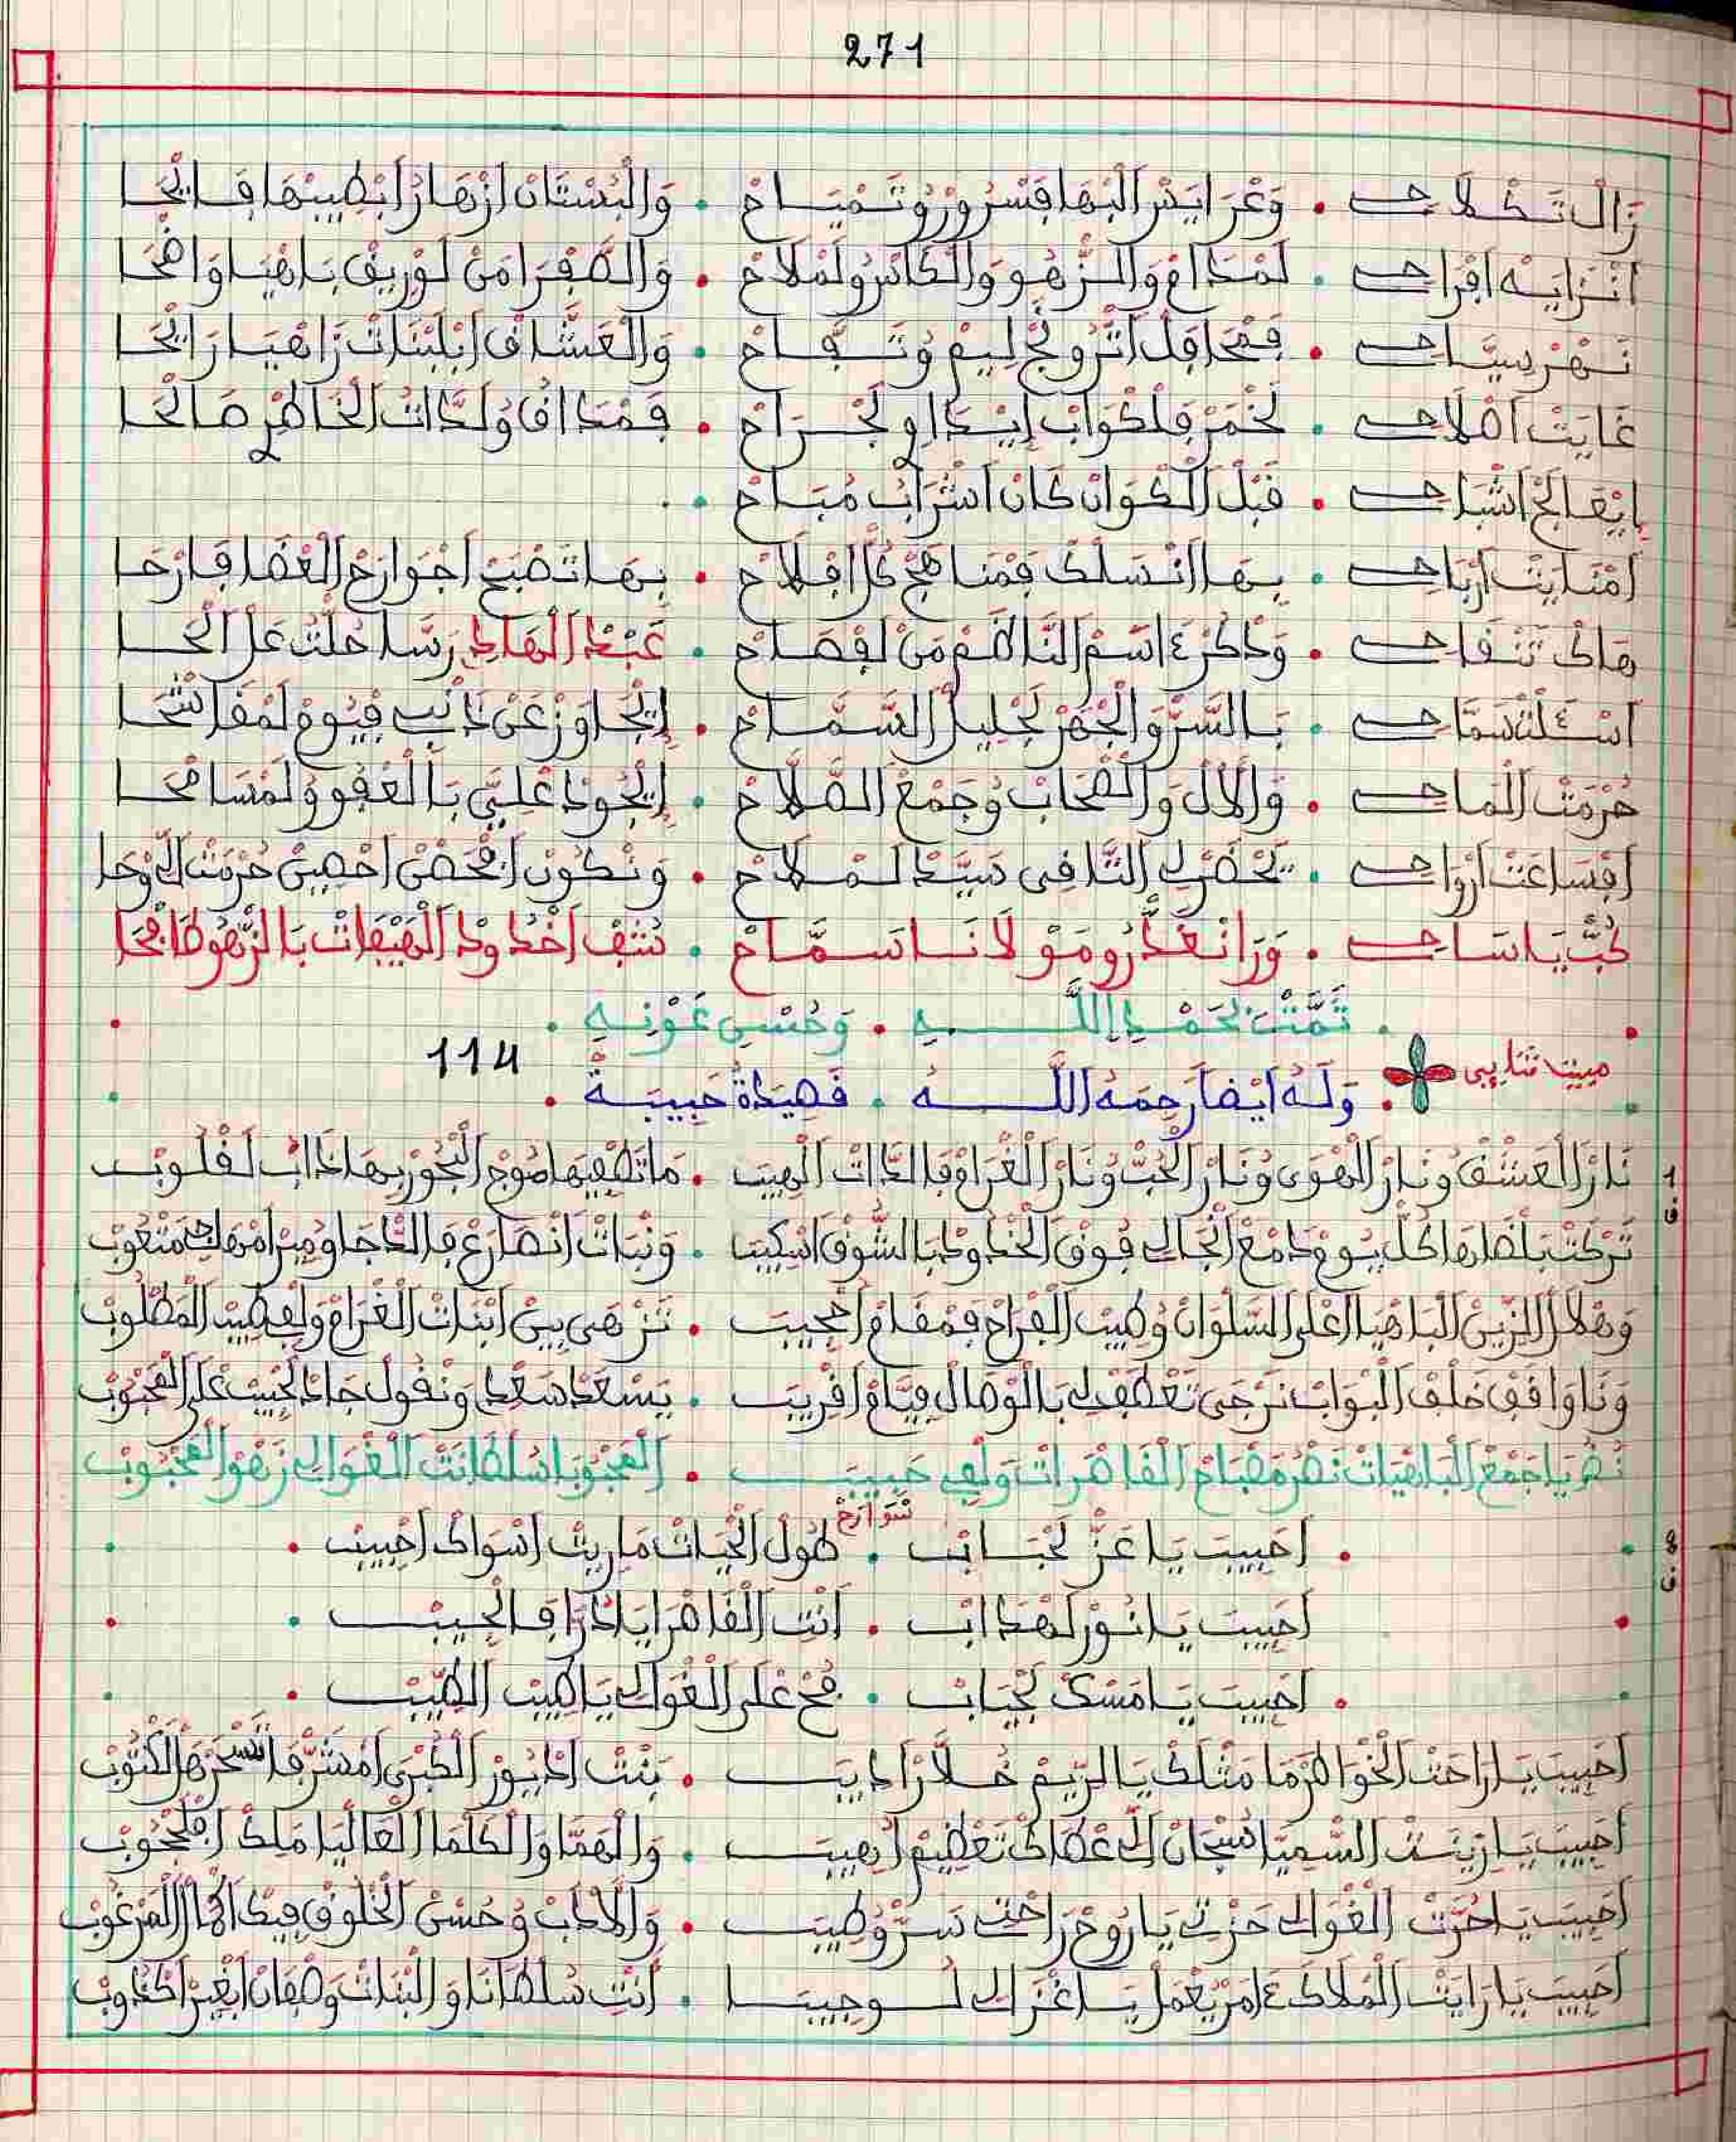 271
زَالْ تَكْلَاحِي • وَعْرَايَسْ الْبْهَا فَسْرُورْ وُتَمْيَاحْ • وَالْبُسْتَانْ ازْهَارُ ابْطِيبْهَا فَايْحَا
انْزَايَهْ افْرَاحِي • لَمْدَامْ وَالزّهُو وَالْكَاسْ وُلَمْلَاحْ • وَالصَّفْرَا مَنْ لَوْرِيقْ بَاهْيَا وَاضْحَا
نَهْرْ سِيَّاحِي • فَمْحَافَلْ اتْرُونْجْ لِيمْ وُتَفَّاحْ • وَالْعَشَّاقْ ابْلَبْنَاتْ زَاهْيَا رَايْحَا
غَايَتْ اصْلَاحِي • لَخْمَرْ فَلْكْوَابْ إيْدَاوِ لَجْرَاحْ • فَمْدَاقُ وُلَدَّاتُ الْخَاطْرِ صَالْحَا
إيْعَالَجْ اشْبَاحِي • قَبْلْ الْكْوَانْ كَانْ اشْرَابُ مُبَاحْ •
امْنَايَتْ ارْبَاحِي • بِهَا انْسَلَّكْ فَمْنَاهَجْ كُلّ افْلَاحْ • بِهَا تَصْبَحْ اجْوَارَحْ الْعْضَا فَارْحَا
هَاكْ تَنْقَاحِي • وَذْكُرْ عَ اسْمْ النَّاظَمْ مَنْ لَفْصَاحْ • عَبْدْ الْهَادِي رَسَا حُلْتُ عَلْ الْحَا
اسْئَلْتْ سَمَّاحِي • بَالسَّرّ وَالْجْهَرْ لَجْلِيلْ السَّمَّاحْ • إيْجَاوَزْ عَنْ ذَانْبِي فْيُومْ لَمْقَاشْحَا
حُرْمَتْ الْمَاحِي • وَالْالْ وَالصْحَابْ وُجَمْعْ الصُّلَّاحْ • إيْجُودْ عْلِيَّ بَالْعْفُو وُلَمْسَامْحَا
افْسَاعَتْ ارْوَاحِي • يَحْضَرْ لِي الشَّافِي سَيَّدْ لَمْلَاحْ • وَنْكُونْ افْحَصْنْ احْصِينْ حُرْمَتْ الُّوحَا
كُبّ يَا سَاحِي • وَرَا نْغَدْرُو مَوْلَانَا سَمَّاحْ • شُفْ اخْدُودْ الْهِيفَاتْ بَالزّهُو طَافْحَا
تَمَّتْ بِحَمْدِ اللَّهِ • وَحُسْنِ عَوْنِهِ •
114
مبيت ثنايي • وَلَهُ أَيْضاً رَحِمَهُ اللَّهُ • قَصِيدَةُ حَبِيبَة •
1 ق نَارْ الْعَشْقْ وُنَارْ الْهْوَى وُنَارْ الْحُبّ وُنَارْ الْغْرَامْ فَالدَّاتْ الْهِيبَ • مَا تَطْفِيهَا مُوجْ الْبْحُورْ بِهَا اذَابْ لَقْلُوبْ
تَرْكَتْ بَلْضَاهَا كُلّ يُومْ دَمْعْ انْجَالِي فُوقْ الْخْدُودْ بَالشُّوقْ اسْكِيبَ • وَنْبَاتْ انْصَارَعْ فَالدّجَا وِمِيرْ امْهَاجِي مَتْعُوبْ
وَهْلَالْ الزِّينْ الْبَاهْيَا اعْلَى السَّلْوَانْ وُطِيبْ الْفْرَاحْ فَمْقَامْ اعْجِيبَ • تَزْهَى بِينْ ابْنَاتْ الْغْرَامْ وَلْفِي طِيبْ الْمَطْلُوبْ
وَنَا وَاقَفْ خَلْفْ الْبْوَابْ نَرْجَى تَعْطَفْ لِي بَالْوْصَالْ فِيَّامْ اقْرِيبَ • يَسْعَدْ سَعْدِي وَنْقُولْ جَادْ لَحْبِيبْ عْلَى الْمَحْبُوبْ
نُصْرْ يَا جَمْعْ الْبَاهْيَاتْ نَصْرْ مَصْبَاحْ الْقَاصْرَاتْ وَلْفِي حَبِيبَ • الْمَحْبُوبَا سُلْطَانْتْ الْغْوَالِي زَهْوْ الْمَحْبُوبْ
2 ق • احَبِيبَ يَا عَزّ لَحْبَابْ • طُولْ الْحْيَاتْ مَا رِيتْ اسْوَاكْ احْبِيبْ •
احَبِيبَ يَا نُورْ لَهْدَابْ • أَنْتِ الْقَاصْرَا يَا دُرَّا فَالْجِيبْ •
• احَبِيبَ يَا مَسْكْ لَجْبَابْ • فُحْ عْلَى الْغْوَالِي يَا طِيبْ الطِّيبْ •
احَبِيبَ يَا رَاحْتْ الْخْوَاطَرْ مَا مَثْلَكْ يَا الرِّيمْ خُلَّارْ ادِيبَ • بَنْتْ ادْيُورْ الْكُبْرَى امْشَرّفَا الْكْتُوبْ
احَبِيبَ يَا زِينْتْ السْمِيَّا سُبْحَانْ الِّي عْطَاكْ تَعْظِيمْ اهِيبَ • وَالْهَمَّا وَالْكَلْمَا الْعَالْيَا مَلْكْ
احَبِيبَ يَا حُرَّتْ الْغْوَالِي حَزْتِ يَا رُوحْ رَاحْتِي سَرّ وُطِيبَ • وَالْادَبْ وُحُسْنْ الْخْلُوقْ فِيكْ اكْمَالْ الْمَرْغُوبْ
احَبِيبَ يَا رَايْتْ الْمْلَاكْ عَ امْرْ يُعْمَلْ يَا غْزَالِي لُوجِيبَا • أَنْتِ سُلْطَانَا وَالْبْنَاتْ وَصْفَانْ ابْغِيرْ اكْدُوبْ